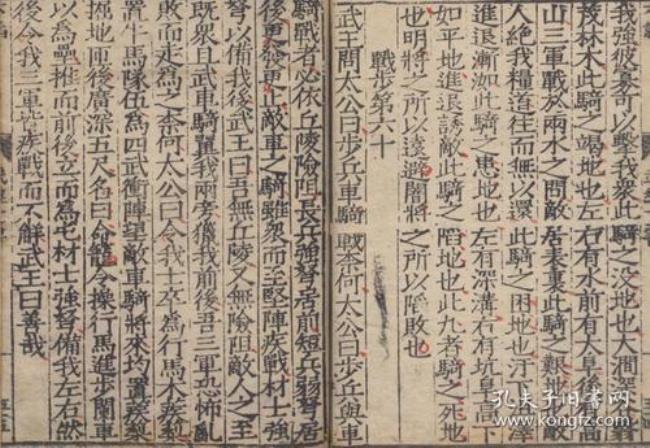 我強彼寡可以擊我衆此騎之没地也大澗深
茂林木此騎之竭地也左右有水前有大阜後
山三軍戰於兩水之間敵居表裏此騎之艱地
人絕我糧道往而無以還此騎之困地也汙
進退漸洳此騎之患地也左有深溝右有坑阜高下
如平地進退誘敵此騎之陷地也此九者騎之死地
也明將之所以遠避闇將之所以陷敗也
戰步第六十
武王問太公曰步兵車騎戰柰何太公曰步兵與車
騎戰者必依丘陵險阻長兵強弩居前短兵弱弩居
後更發更止敵軍之騎雖衆而至堅陣疾戰材士強
弩以備我後武王曰吾無丘陵又無險阻敵人之至
既衆且武車騎翼我兩旁獵我前後吾三軍恐怖亂
敗而走為之柰何太公曰令我士卒為行馬木蒺藜
置牛馬隊伍為四武衝陣望敵車騎將來均置蒺藜
掘地匝後廣深五尺名曰命籠令操行馬進步闌車
以為壘推而前後立而為屯材士強弩備我左右然
後令我三軍皆疾戰而不解武王曰善哉
孔夫子旧书网
kongfz.com